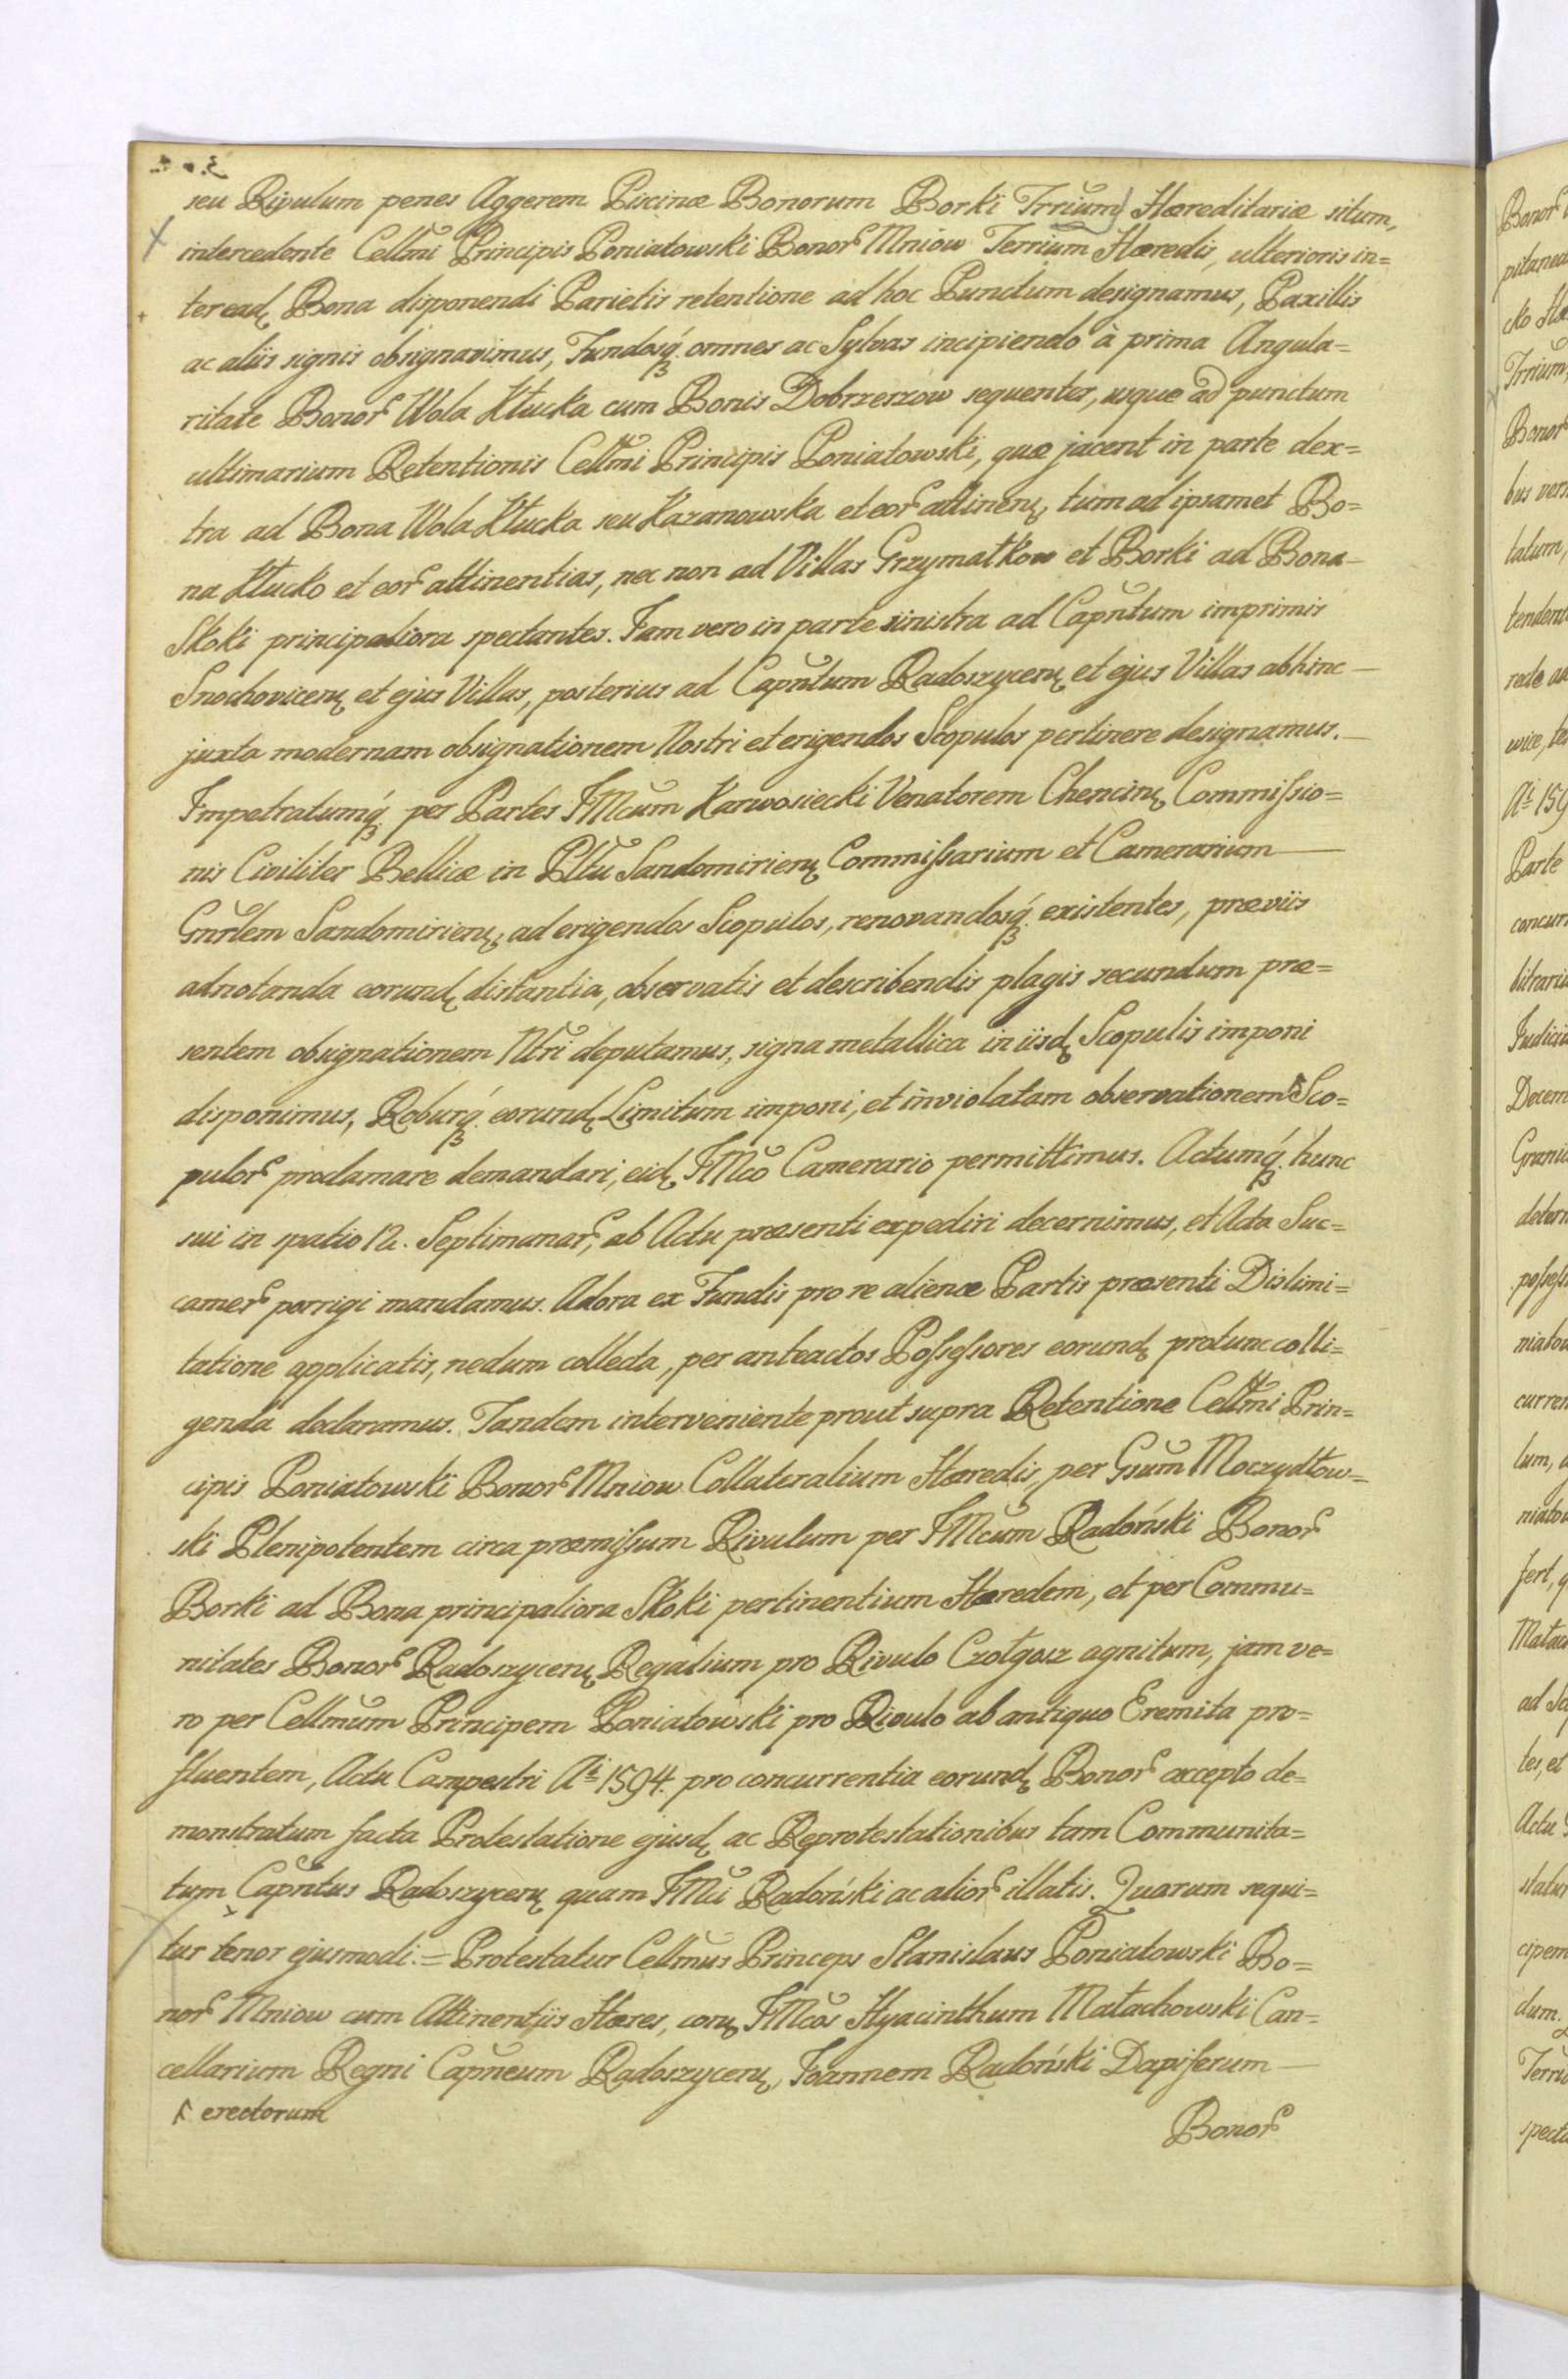 seu Rivulum penes Aggerem Piscinæ Bonorum Borki Trrium Hæreditariæ situm,
intercedente Cellmi Principis Poniatowski Bonor Mniow Terrium Hæredis, ulterioris in=
teread Bona disponendi Parietis retentione ad hoc Punctum designamus, Paxillis
ac aliis signis obsignavimus, Fundosq omnes ac Sylvas incipiendo à prima Angula=
ritate Bonor Wola Kłucka cum Bonis Dobrzeszow sequentes, usque ad punctum
ultimarium Retentionis Cellmi Principis Poniatowski, quæ jacent in parte dex=
tra ad Bona Wola Kłucka seu Kazanowska et eor attinen, tum ad ipsamet Bo=
na Kłucko et eor attinentias, nec non ad Villas Grzymałkow et Borki ad Bona
Skoki principaliora spectantes. Jam vero in parte sinistra ad Capntum imprimis
Snochovicen et ejus Villas, posterius ad Capntum Radoszycen et ejus Villas abhinc
juxta modernam obsignationem Nostri et erigendos Scopulos pertinere designamus.
Impetratumq per Partes JMcum Karwosiecki Venatorem Chencin Commissio=
nis Civiliter Bellicæ in Pltu Sandomirien Commissarium et Camerarium
Gnrlem Sandomirien, ad erigendos Scopulos, renovandosq existentes, præviis
adnotanda eorund distantia, observatis et describendis plagis secundum præ=
sentem obsignationem Ntri deputamus, signa metallica in iisd Scopulis imponi
disponimus, Roburq eorund Limitum imponi, et inviolatam observationem Sco=
pulor proclamare demandari, eid JMco Camerario permittimus. Actumq hunc
sui in spatio 12. Septimanar, ab Actu præsenti expediri decernimus, et Acta Suc=
camer porrigi mandamus. Adora ex Fundis pro re alienæ Partis præsenti Dislimi=
tatione applicatis, nedum collecta, per anteactos Possessores eorund protunc colli=
genda declaramus. Tandem interveniente prout supra Retentione Cellmi Prin=
cipis Poniatowski Bonor Mniow Collateralium Hæredis, per Gsum Moczydłow=
ski Plenipotentem circa præmissum Rivulum per JMcum Radoński Bonor
Borki ad Bona principaliora Skoki pertinentium Hæredem, et per Commu=
nitates Bonor Radoszycen Regalium pro Rivulo Czołgosz agnitum, jam ve=
ro per Cellmum Principem Poniatowski pro Rivulo ab antiquo Eremita pro=
fluentem, Actu Campestri A 1594. pro concurrentia eorund Bonor accepto de=
monstratum facta Protestatione ejusd ac Reprotestationibus tam Communita=
tum Capntus Radoszycen quam JMci Radoński ac alior illatis. Quarum sequi=
tur tenor ejusmodi:= Protestatur Cellmus Princeps Stanislaus Poniatowski Bo=
nor Mniow cum Attinentiis Hæres, con JMcos Hyacinthum Małachowski Can=
cellarium Regni Capneum Radoszycen, Joannem Radoński Dapiferum
erectorum
Bonor